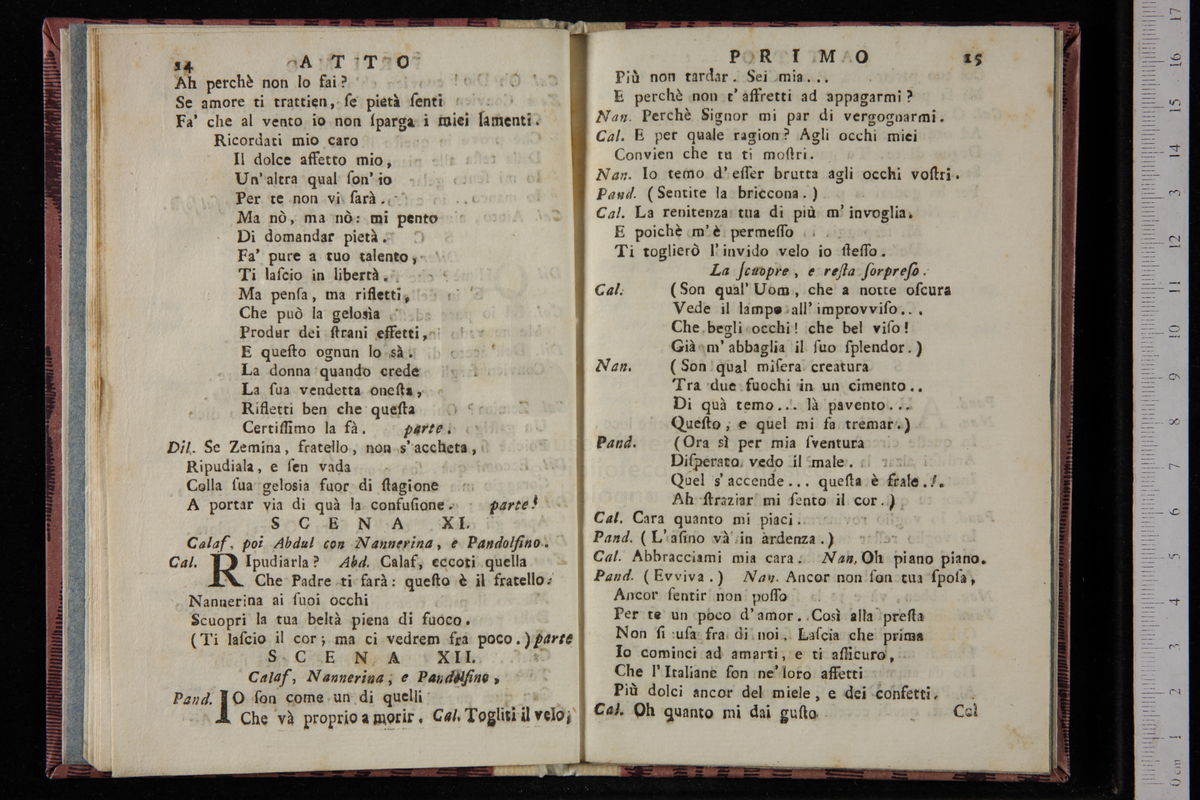 14 ATTO
Ah perchè non lo fai?
Se amore ti trattien, ſe pietà ſenti
Fa' che al vento io non ſparga i miei lamenti.
Ricordati mio caro
Il dolce affetto mio,
Un' altra qual ſon' io
Per te non vi ſarà.
Ma nò, ma nò: mi pento
Di domandar pietà.
Fa' pure a tuo talento,
Ti laſcio in libertà.
Ma penſa, ma rifletti,
Che può la gelosìa
Produr dei ſtrani effetti,
E queſto ognun lo sà.
La donna quando crede
La ſua vendetta oneſta,
Rifletti ben che queſta
Certiſſimo la fà. parte.
Dil. Se Zemina, fratello, non s'accheta,
Ripudiala, e ſen vada
Colla ſua gelosia fuor di ſtagione
A portar via di quà la confuſione. parte.
SCENA XI.
Calaf, poi Abdul con Nannerina, e Pandolfino.
Cal. RIpudiarla? Abd. Calaf, eccoti quella
Che Padre ti farà: queſto è il fratello.
Nannerina ai ſuoi occhi
Scuopri la tua beltà piena di fuoco.
(Ti laſcio il cor; ma ci vedrem fra poco.) parte
SCENA XII.
Calaf, Nannerina, e Pandolfino,
Pand. IO ſon come un di quelli
Che và proprio a morir. Cal. Togliti il velo;
PRIMO 15
Più non tardar. Sei mia...
E perchè non t' affretti ad appagarmi?
Nan. Perchè Signor mi par di vergognarmi.
Cal. E per quale ragion? Agli occhi miei
Convien che tu ti moſtri.
Nan. Io temo d' eſſer brutta agli occhi voſtri.
Pand. (Sentite la briccona.)
Cal. La renitenza tua di più m' invoglia.
E poichè m' è permeſſo
Ti toglierò l' invido velo io ſteſſo.
La ſcuopre, e reſta ſorpreſo.
Cal. (Son qual' Uom, che a notte oſcura
Vede il lampo all' improvviſo...
Che begli occhi! che bel viſo!
Già m' abbaglia il ſuo ſplendor.)
Nan. (Son qual miſera creatura
Tra due fuochi in un cimento..
Di quà temo... là pavento...
Queſto, e quel mi fa tremar.)
Pand. (Ora sì per mia ſventura
Diſperato vedo il male.
Quel s' accende... queſta è frale...
Ah ſtraziar mi ſento il cor.)
Cal. Cara quanto mi piaci.
Pand. (L' aſino và in ardenza.)
Cal. Abbracciami mia cara. Nan. Oh piano piano.
Pand. (Evviva.) Nan. Ancor non ſon tua ſpoſa,
Ancor ſentir non poſſo
Per te un poco d' amor. Così alla preſta
Non ſi uſa fra di noi. Laſcia che prima
Io cominci ad amarti, e ti aſſicuro,
Che l' Italiane ſon ne' loro affetti
Più dolci ancor del miele, e dei confetti.
Cal. Oh quanto mi dai guſto
Col
0 cm 1 2 3 4 5 6 7 8 9 10 11 12 13 14 15 16 17